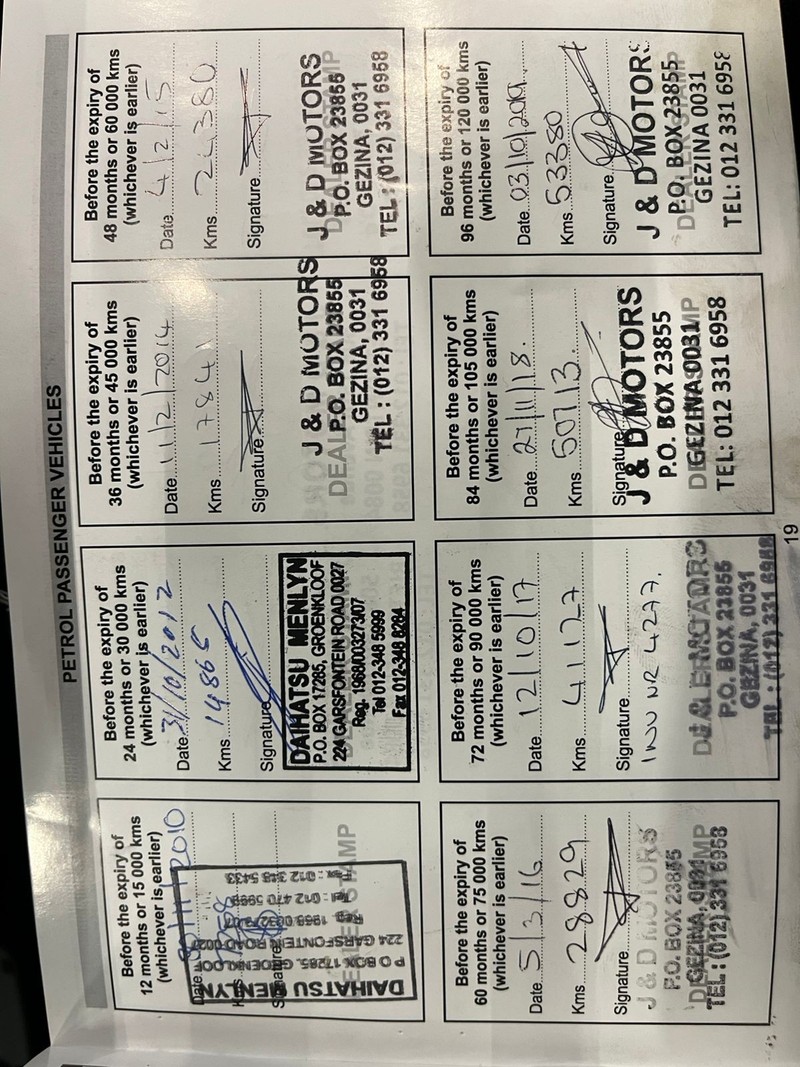 PETROL PASSENGER VEHICLES
Before the expiry of
12 months or 15 000 kms
(whichever is earlier)
Date 2010
Kms
DEALER STAMP
DAIHATSU MENLYN
P O BOX 17285, GROENKLOOF
224 GARSFONTEIN ROAD 0027
Reg. 1968/003273/07
Tel : 012 470 5999
Fax : 012 348 5433
Before the expiry of
24 months or 30 000 kms
(whichever is earlier)
Date 31/10/2012
Kms 14865
Signature
DAIHATSU MENLYN
P.O. BOX 17285, GROENKLOOF
224 GARSFONTEIN ROAD 0027
Reg. 1968/003273/07
Tel 012-348 5999
Fax 012-348 8284
Before the expiry of
36 months or 45 000 kms
(whichever is earlier)
Date 11/2/2014
Kms 17841
Signature
J & D MOTORS
P.O. BOX 23855
GEZINA, 0031
TEL : (012) 331 6958
Before the expiry of
48 months or 60 000 kms
(whichever is earlier)
Date 4/2/15
Kms 24380
Signature
J & D MOTORS
DEALER STAMP
P.O. BOX 23855
GEZINA, 0031
TEL : (012) 331 6958
Before the expiry of
60 months or 75 000 kms
(whichever is earlier)
Date 5/3/16
Kms 28829
Signature
J & D MOTORS
P.O. BOX 23855
DEALER STAMP
GEZINA, 0031
TEL : (012) 331 6958
Before the expiry of
72 months or 90 000 kms
(whichever is earlier)
Date 12/10/17
Kms 41127
Signature
INV NR 4277.
P.O. BOX 23855
GEZINA, 0031
TEL : (012) 331 6958
Before the expiry of
84 months or 105 000 kms
(whichever is earlier)
Date 27/11/18.
Kms 50713.
Signature
J & D MOTORS
P.O. BOX 23855
DEALER STAMP
GEZINA 0031
TEL: 012 331 6958
Before the expiry of
96 months or 120 000 kms
(whichever is earlier)
Date 03/10/2019
Kms 53380
Signature
J & D MOTORS
P.O. BOX 23855
DEALER STAMP
GEZINA 0031
TEL: 012 331 6958
19